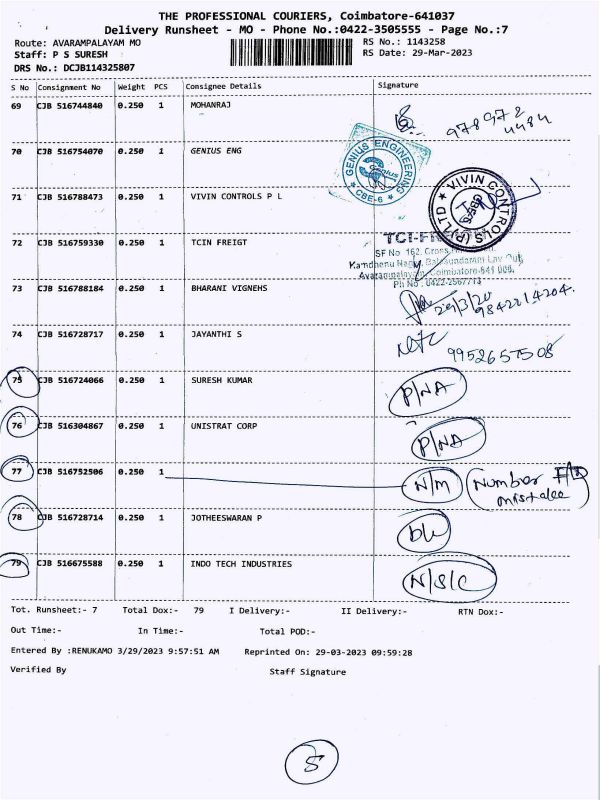 THE PROFESSIONAL COURIERS, Coimbatore-641037
Delivery Runsheet - MO - Phone No.:0422-3505555 - Page No.:7
Route: AVARAMPALAYAM MO
RS No.: 1143258
Staff: P S SURESH
RS Date: 29-Mar-2023
DRS No.: DCJB114325807
S No Consignment No Weight PCS Consignee Details Signature
69 CJB 516744840 0.250 1 MOHANRAJ
978972
4484
70 CJB 516754070 0.250 1 GENIUS ENG
GENIUS ENGINEERING
Genius
* CBE-6 *
71 CJB 516788473 0.250 1 VIVIN CONTROLS P L
VIVIN CONTROLS (P) LTD
72 CJB 516759330 0.250 1 TCIN FREIGT
SF No 162, Cross
Kamdhenu Nagar, Balasundaram Lay Out
Avarampalayam, Coimbatore-641 006.
Ph No : 0422-2567713
73 CJB 516788184 0.250 1 BHARANI VIGNEHS
29/3/20
9842214204.
74 CJB 516728717 0.250 1 JAYANTHI S
9952657508
75 CJB 516724066 0.250 1 SURESH KUMAR P/NA
76 CJB 516304867 0.250 1 UNISTRAT CORP P/NA
77 CJB 516752506 0.250 1 N/M Number
mistake
78 CJB 516728714 0.250 1 JOTHEESWARAN P
79 CJB 516675588 0.250 1 INDO TECH INDUSTRIES N/S/C
Tot. Runsheet:- 7 Total Dox:- 79 I Delivery:- II Delivery:- RTN Dox:-
Out Time:- In Time:- Total POD:-
Entered By :RENUKAMO 3/29/2023 9:57:51 AM Reprinted On: 29-03-2023 09:59:28
Verified By Staff Signature
5